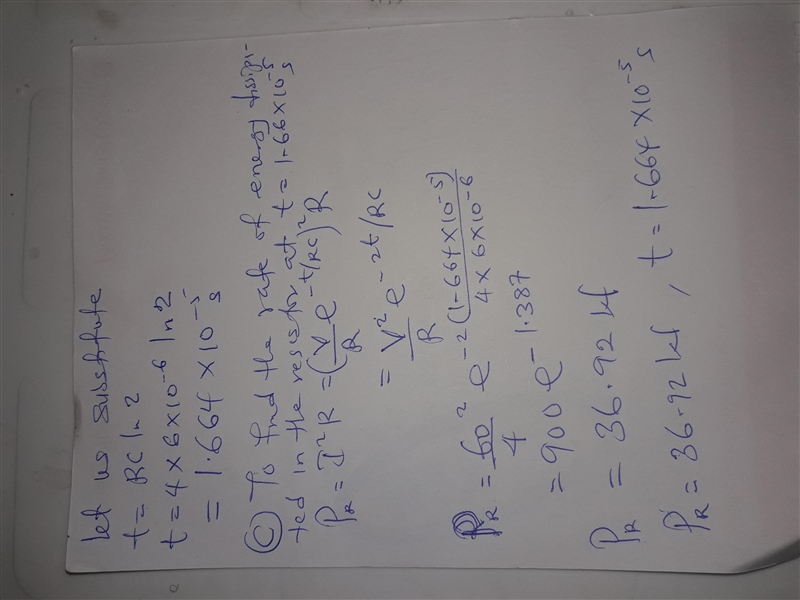 Let us substitute
t = RC ln 2
t = 4 × 6 × 10^-6 ln 2
= 1.664 × 10^-5 s
(C) To find the rate of energy dissipa-
ted in the resistor at t = 1.66 × 10^-5 s
P_R = I^2 R = (V/R e^-t/RC)^2 R
= V^2/R e^-2t/RC
P_R = 60^2/4 e^-2(1.664×10^-5)/4×6×10^-6
= 900 e^-1.387
P_R = 36.92 W
P_R = 36.92 W, t = 1.664 × 10^-5 s